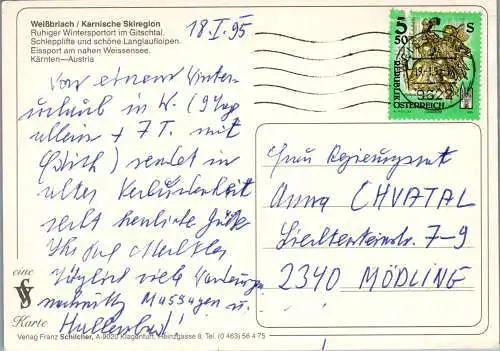 Weißbriach / Karnische Skiregion
Ruhiger Wintersportort im Gitschtal.
Schlepplifte und schöne Langlaufloipen.
Eissport am nahen Weissensee.
Kärnten—Austria
18. I. 95
Von einem Winter-
urlaub in W. (9 Tage
allein + 7 T. mit
sendet in
alter Verbundenheit
recht herzliche Grüße
Ihr
täglich viele
Massagen u.
Hallenbad!
eine
Karte
Verlag Franz Schilcher, A-9020 Klagenfurt, Heinzgasse 8, Tel. (0 463) 56 4 75
5
50
S
REPUBLIK
ÖSTERREICH
9622
Frau Regierungsrat
Anna CHVATAL
Liechtensteinstr. 7-9
2340 MÖDLING